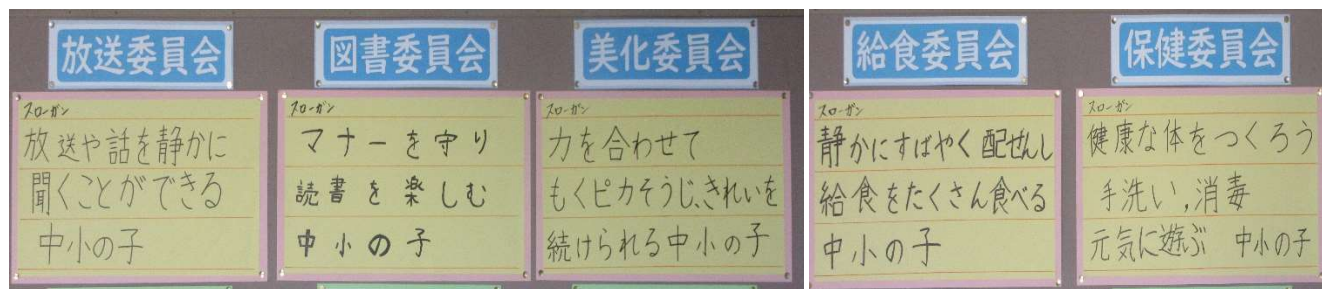 放送委員会
スローガン
放送や話を静かに
聞くことができる
中小の子
図書委員会
スローガン
マナーを守り
読書を楽しむ
中小の子
美化委員会
スローガン
力を合わせて
もくピカそうじ、きれいを
続けられる中小の子
給食委員会
スローガン
静かにすばやく配ぜんし
給食をたくさん食べる
中小の子
保健委員会
スローガン
健康な体をつくろう
手洗い,消毒
元気に遊ぶ 中小の子